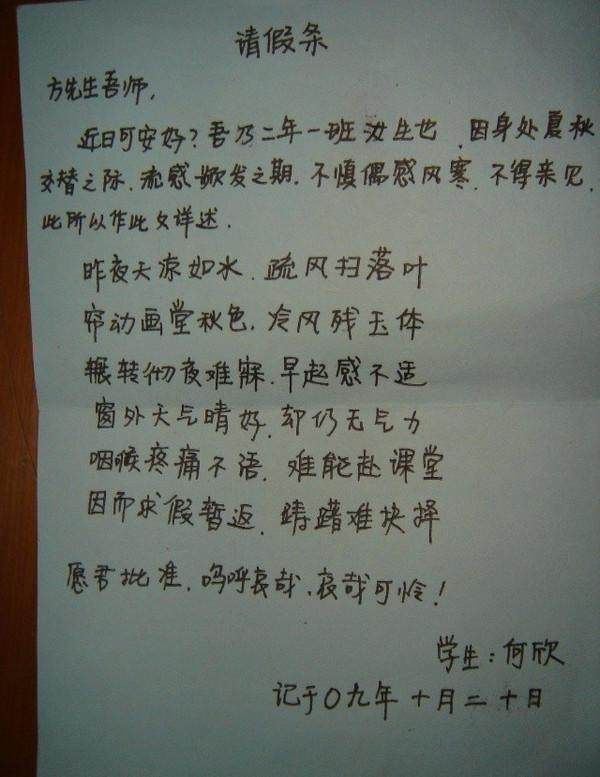 请假条
方先生吾师,
近日可安好?吾乃二年一班汝生也,因身处夏秋
交替之际,流感掀发之期,不慎偶感风寒,不得来见,
此所以作此文详述.
昨夜天凉如水,疏风扫落叶
帘动画堂秋色,冷风残玉体
辗转彻夜难寐,早起感不适
窗外天气晴好,却仍无气力
咽喉疼痛不语,难能赴课堂
因而求假暂返,踌躇难抉择
愿君批准,呜呼哀哉,哀哉可怜!
学生:何欣
记于09年十月二十日